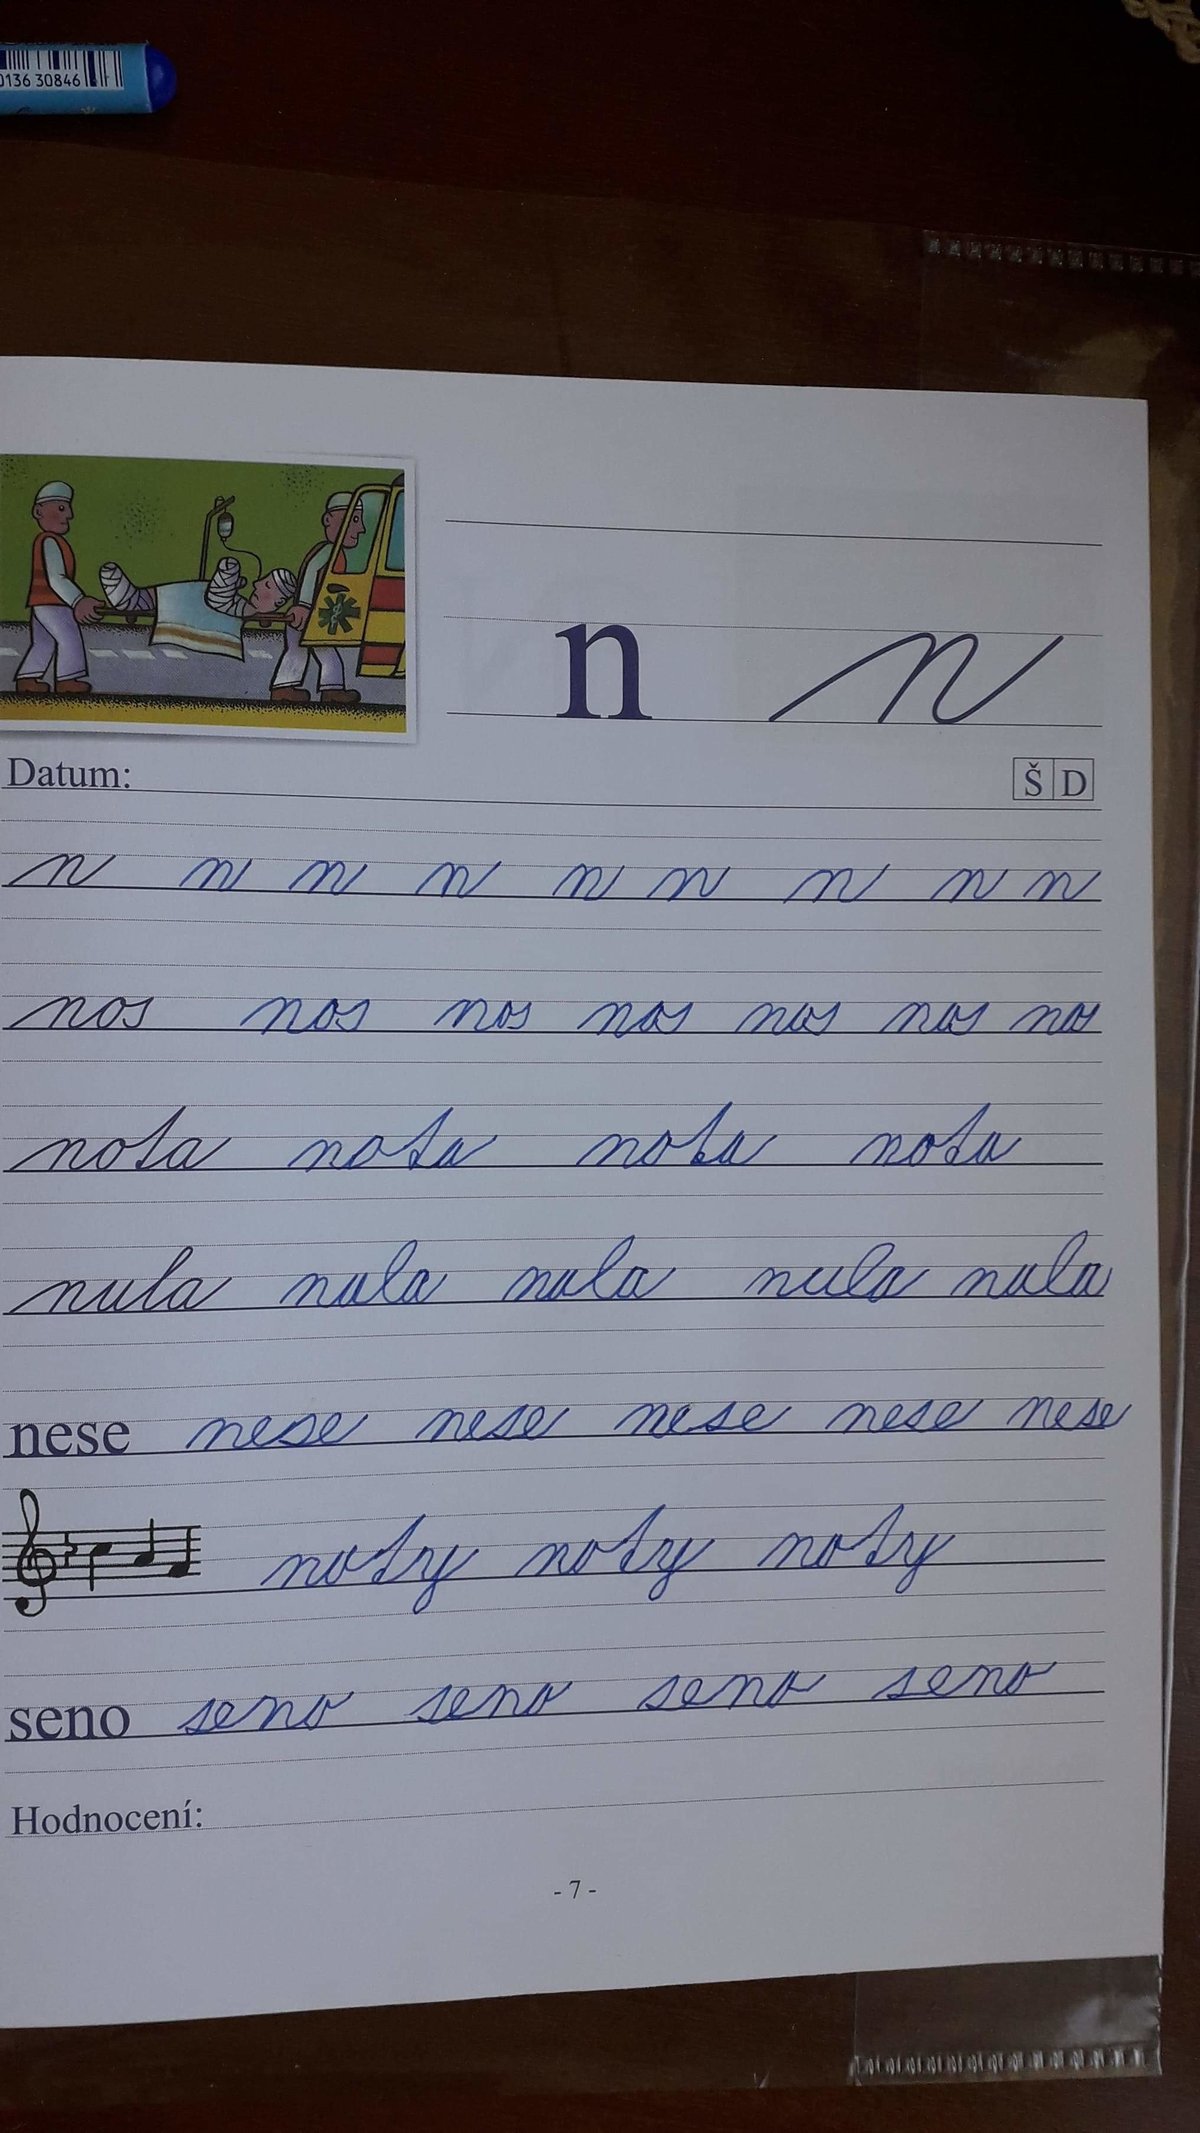 0136 30846
n n
Datum: Š D
n n n n n n n n n
nos nos nos nos nos nos nos
nota nota nota nota
nula nula nula nula nula
nese nese nese nese nese nese
noty noty noty
seno seno seno seno seno
Hodnocení:
- 7 -